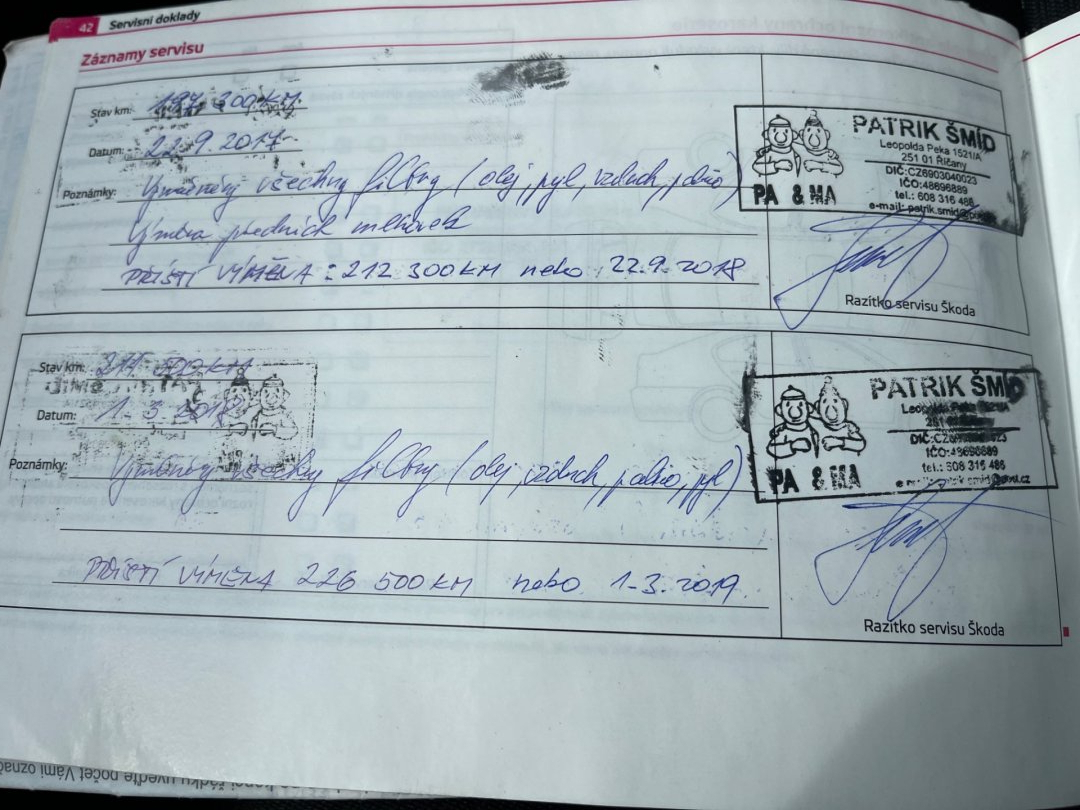 42 Servisní doklady
Záznamy servisu
Stav km: 197 300KM
Datum: 22.9.2017
Poznámky: Výměněny všechny filtry (olej, pyl, vzduch, palivo)
Výměna předních mlhovek
PŘÍŠTÍ VÝMĚNA: 212 300KM nebo 22.9.2018
PATRIK ŠMÍD
Leopolda Peka 1521/A
251 01 Říčany
DIČ:CZ6903040023
IČO:48696889
tel.: 608 316 486
e-mail: patrik.smid@
PA & MA
Razítko servisu Škoda
Stav km: 211 500KM
Datum: 1.3.2018
Poznámky: Výměněny všechny filtry (olej, vzduch, palivo, pyl)
PŘÍŠTÍ VÝMĚNA 226 500KM nebo 1.3.2019
PATRIK ŠMÍD
IČO:48696889
tel.: 608 316 486
PA & MA
Razítko servisu Škoda
řádku uveďte počet Vámi označ